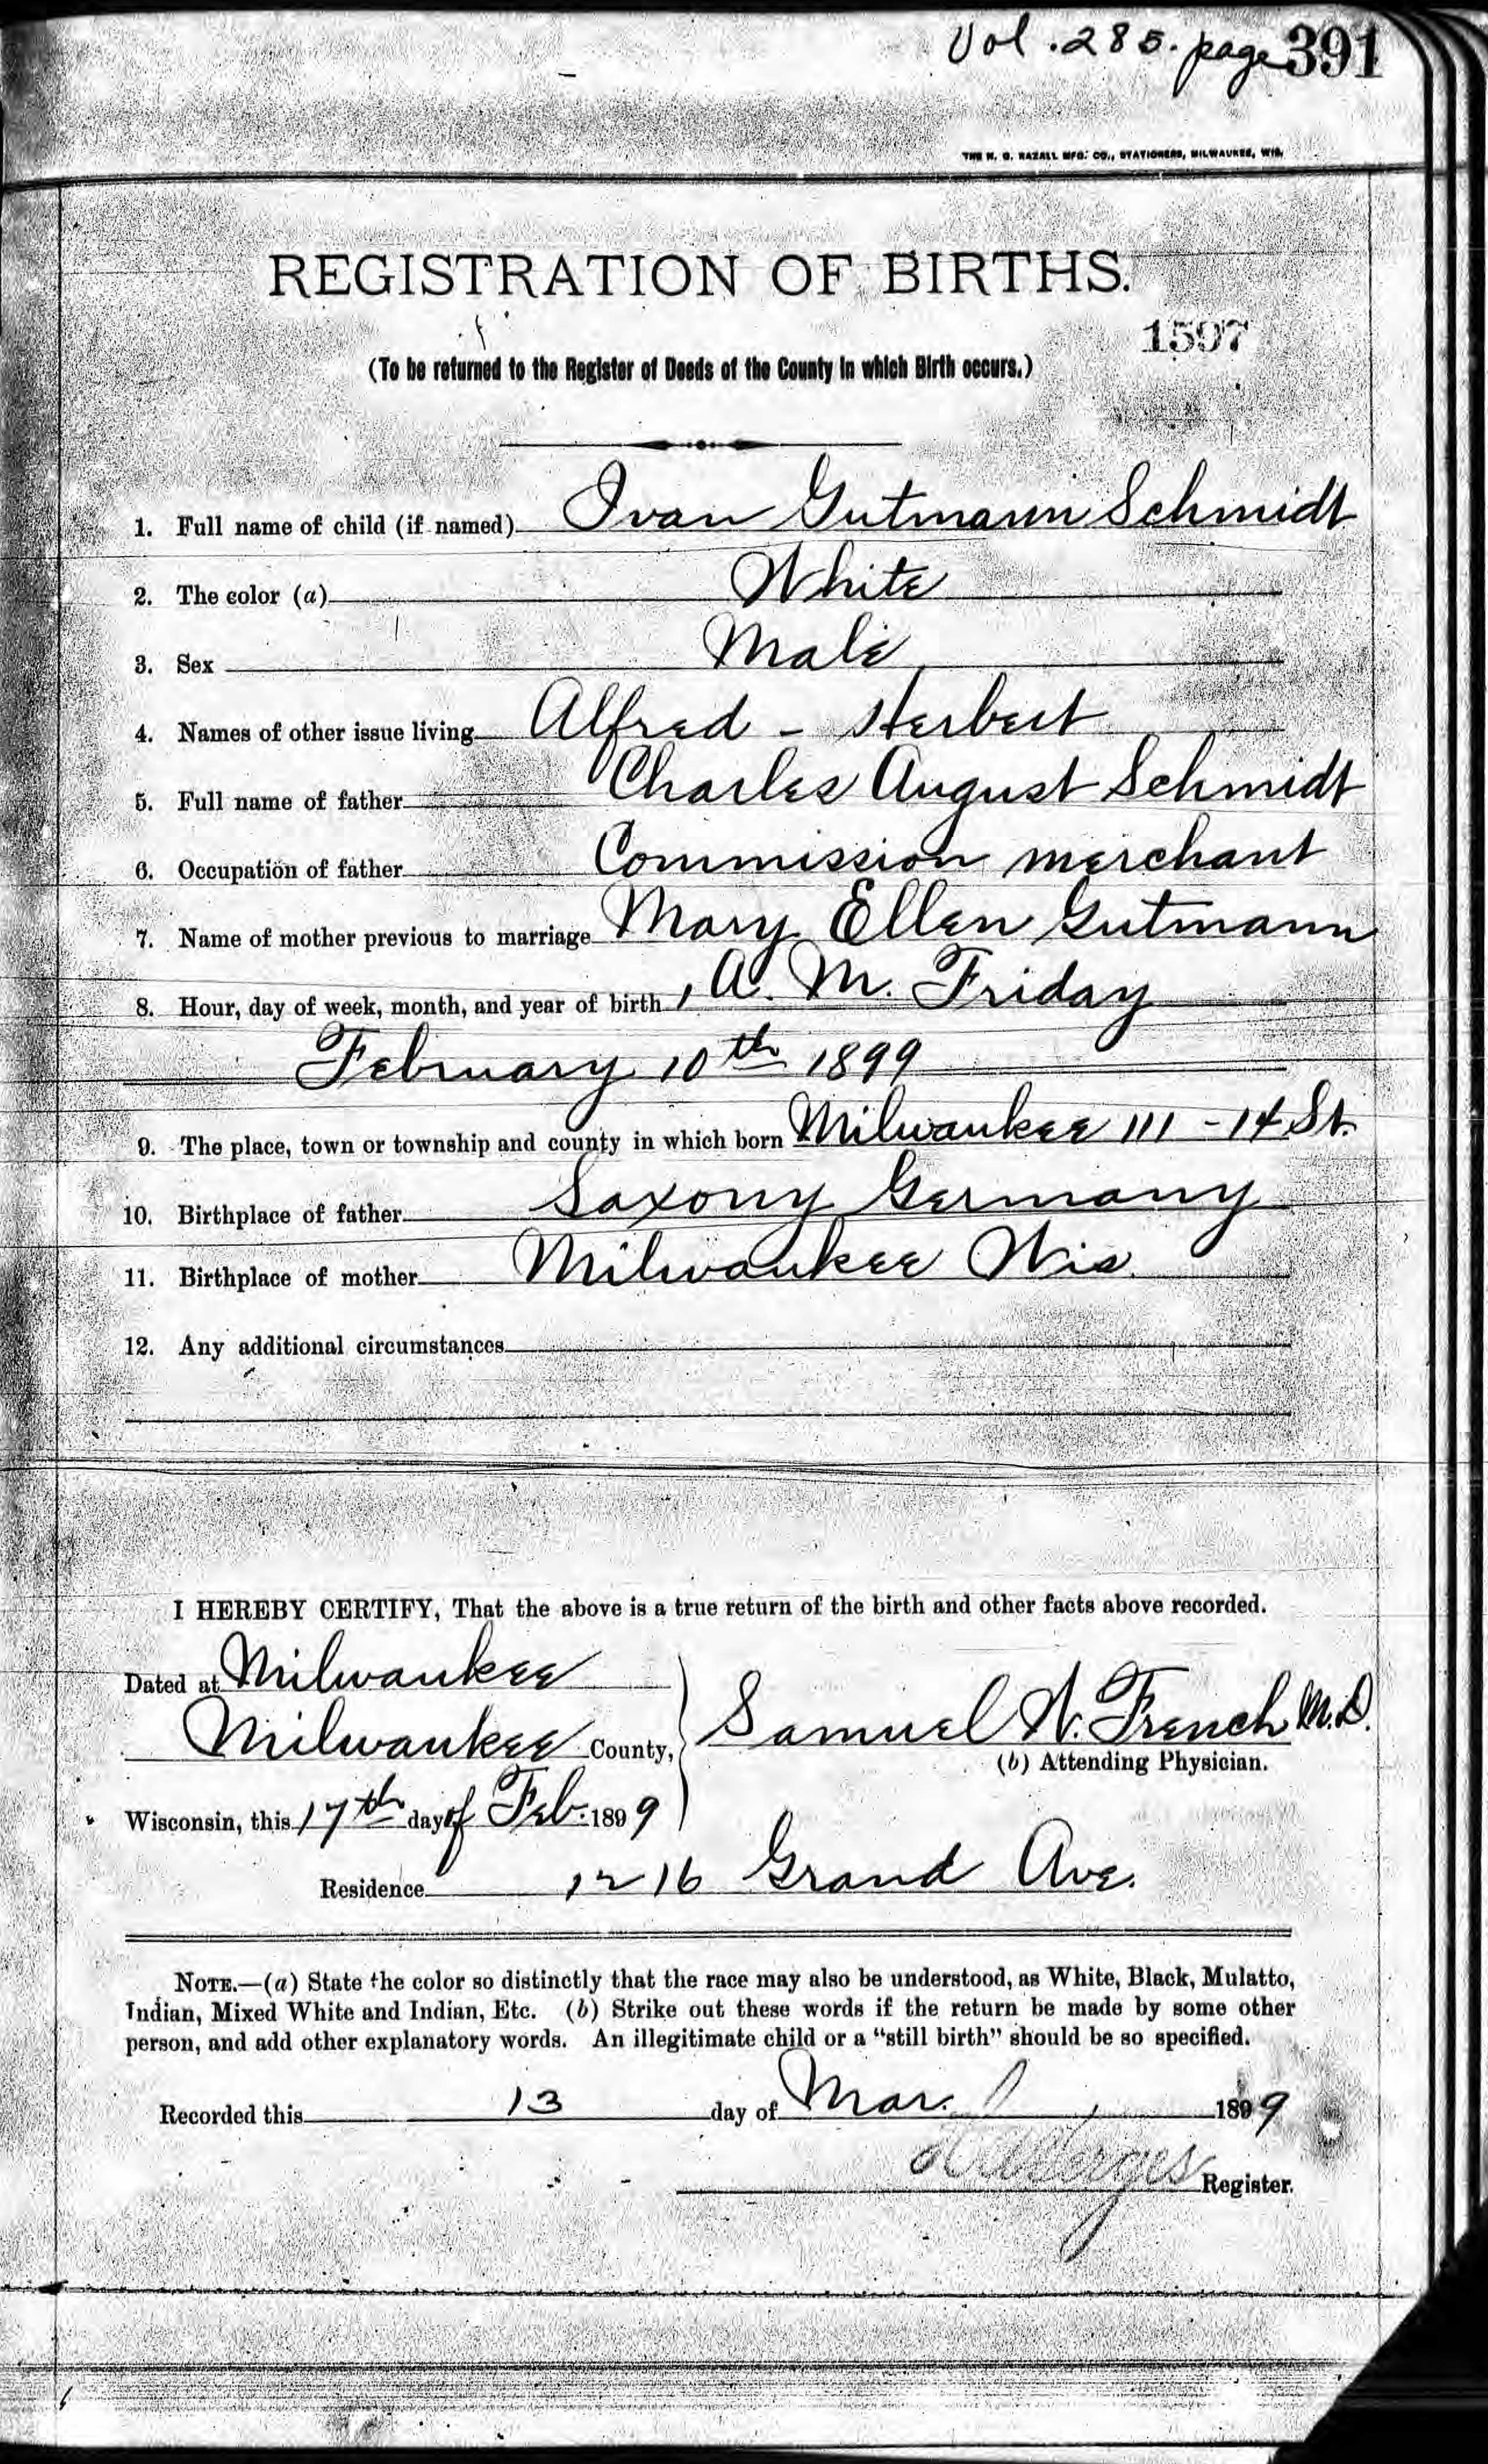 Vol. 285. page 391
THE H. G. RAZALL MFG. CO., STATIONERS, MILWAUKEE, WIS.
REGISTRATION OF BIRTHS.
1597
(To be returned to the Register of Deeds of the County in which Birth occurs.)
1. Full name of child (if named) Ivan Gutmann Schmidt
2. The color (a) White
3. Sex Male
4. Names of other issue living Alfred - Herbert
5. Full name of father Charles August Schmidt
6. Occupation of father Commission merchant
7. Name of mother previous to marriage Mary Ellen Gutmann
8. Hour, day of week, month, and year of birth 1 A. M. Friday
February 10th 1899
9. The place, town or township and county in which born Milwaukee 111 - 14 St.
10. Birthplace of father Saxony Germany
11. Birthplace of mother Milwaukee Wis.
12. Any additional circumstances
I HEREBY CERTIFY, That the above is a true return of the birth and other facts above recorded.
Dated at Milwaukee
Milwaukee County, Samuel W. French M.D.
(b) Attending Physician.
Wisconsin, this 17th day of Feb. 1899
Residence 1216 Grand Ave.
NOTE.—(a) State the color so distinctly that the race may also be understood, as White, Black, Mulatto,
Indian, Mixed White and Indian, Etc. (b) Strike out these words if the return be made by some other
person, and add other explanatory words. An illegitimate child or a "still birth" should be so specified.
Recorded this 13 day of Mar. 1899
Register.